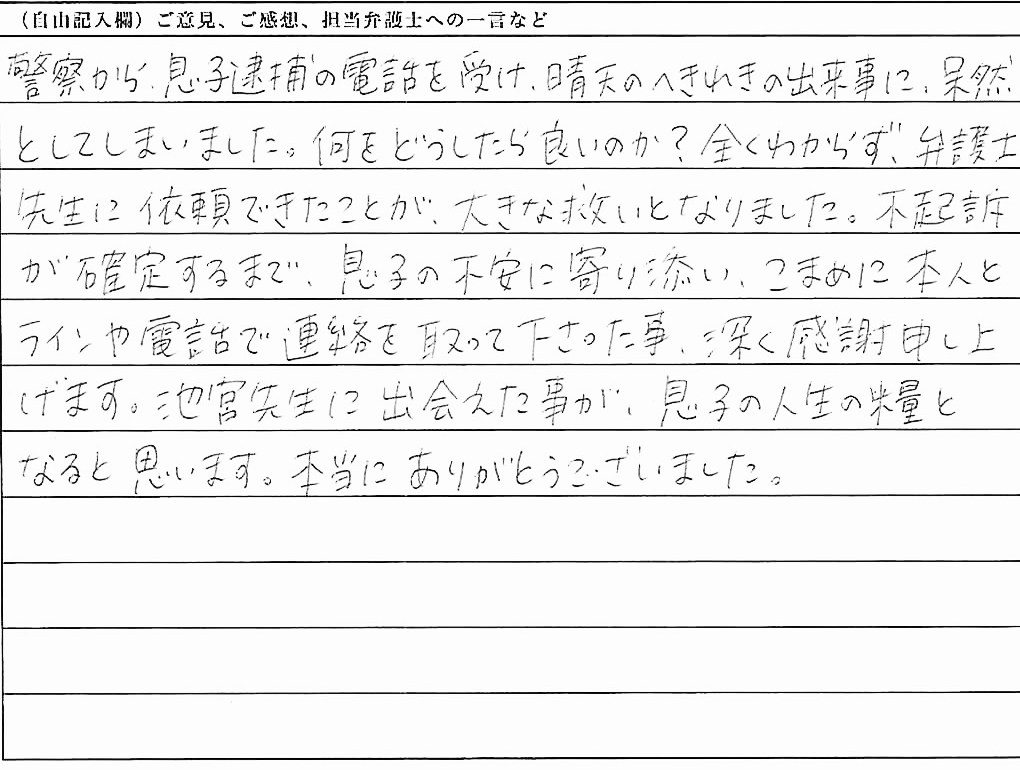 （自由記入欄）ご意見、ご感想、担当弁護士への一言など
警察から、息子逮捕の電話を受け、晴天のへきれきの出来事に、呆然
としてしまいました。何をどうしたら良いのか？全くわからず、弁護士
先生に依頼できたことが、大きな救いとなりました。不起訴
が確定するまで、息子の不安に寄り添い、こまめに本人と
ラインや電話で連絡を取って下さった事、深く感謝申し上
げます。池宮先生に出会えた事が、息子の人生の糧と
なると思います。本当にありがとうございました。